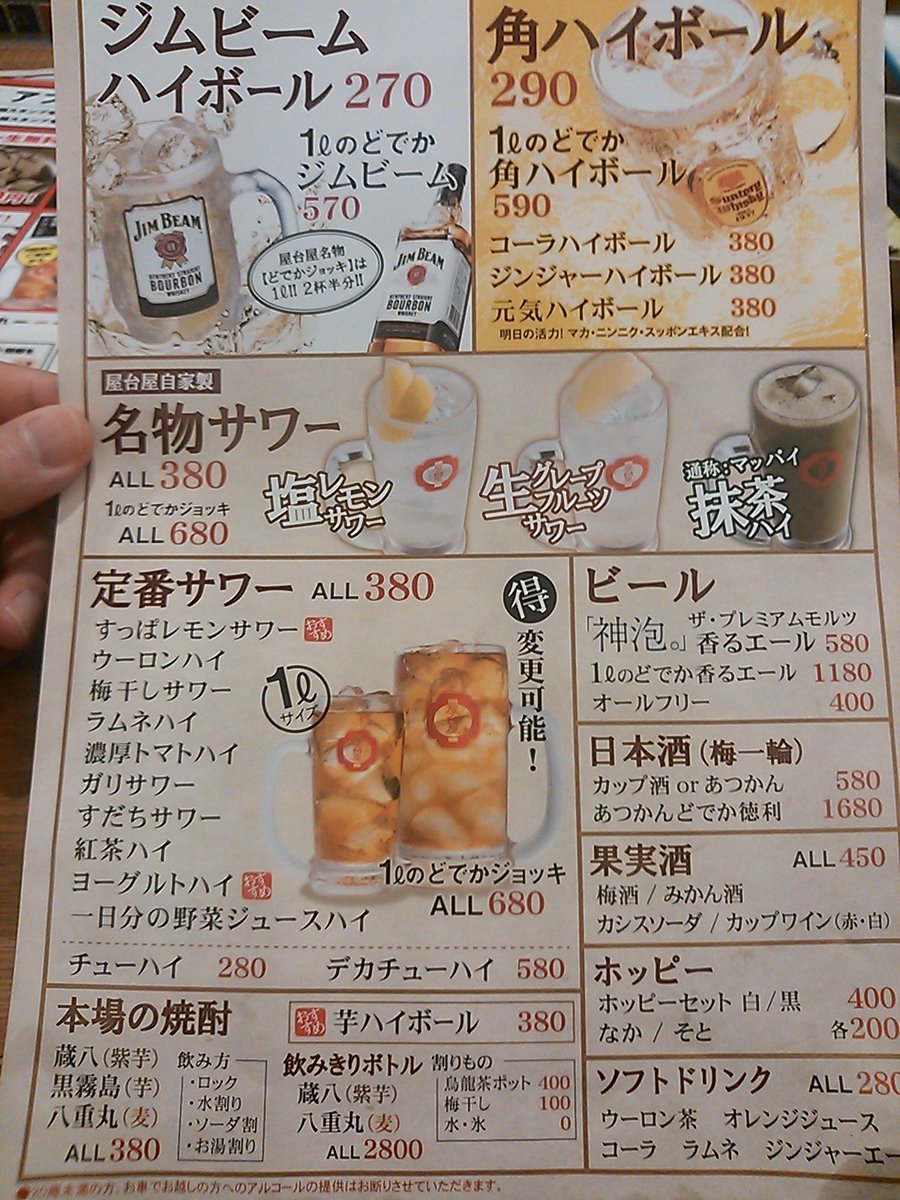 ジムビーム
ハイボール 270
1ℓのどでか
ジムビーム
570
屋台屋名物
【どでかジョッキ】は
1ℓ!! 2杯半分!!
JIM BEAM
KENTUCKY STRAIGHT
BOURBON
WHISKEY
JIM BEAM
KENTUCKY STRAIGHT
BOURBON
WHISKEY
角ハイボール
290
1ℓのどでか
角ハイボール
590
Suntory
Whisky
1937
コーラハイボール 380
ジンジャーハイボール 380
元気ハイボール 380
明日の活力! マカ・ニンニク・スッポンエキス配合!
屋台屋自家製
名物サワー
ALL 380
1ℓのどでかジョッキ
ALL 680
塩レモンサワー
生グレープフルーツサワー
通称:マッパイ
抹茶ハイ
定番サワー ALL 380
すっぱレモンサワー おすすめ
ウーロンハイ
梅干しサワー
ラムネハイ
濃厚トマトハイ
ガリサワー
すだちサワー
紅茶ハイ
ヨーグルトハイ おすすめ
一日分の野菜ジュースハイ
1ℓサイズ
得 変更可能!
1ℓのどでかジョッキ
ALL 680
チューハイ 280 デカチューハイ 580
ビール
「神泡。」ザ・プレミアムモルツ
香るエール 580
1ℓのどでか香るエール 1180
オールフリー 400
日本酒(梅一輪)
カップ酒 or あつかん 580
あつかんどでか徳利 1680
果実酒 ALL 450
梅酒 / みかん酒
カシスソーダ / カップワイン(赤・白)
ホッピー
ホッピーセット 白/黒 400
なか / そと 各200
ソフトドリンク ALL 280
ウーロン茶 オレンジジュース
コーラ ラムネ ジンジャーエー
本場の焼酎
蔵八(紫芋)
黒霧島(芋)
八重丸(麦)
ALL 380
飲み方
・ロック
・水割り
・ソーダ割
・お湯割り
おすすめ 芋ハイボール 380
飲みきりボトル
蔵八(紫芋)
八重丸(麦)
ALL 2800
割りもの
烏龍茶ポット 400
梅干し 100
水・氷 0
●20歳未満の方、お車でお越しの方へのアルコールの提供はお断りさせていただきます。